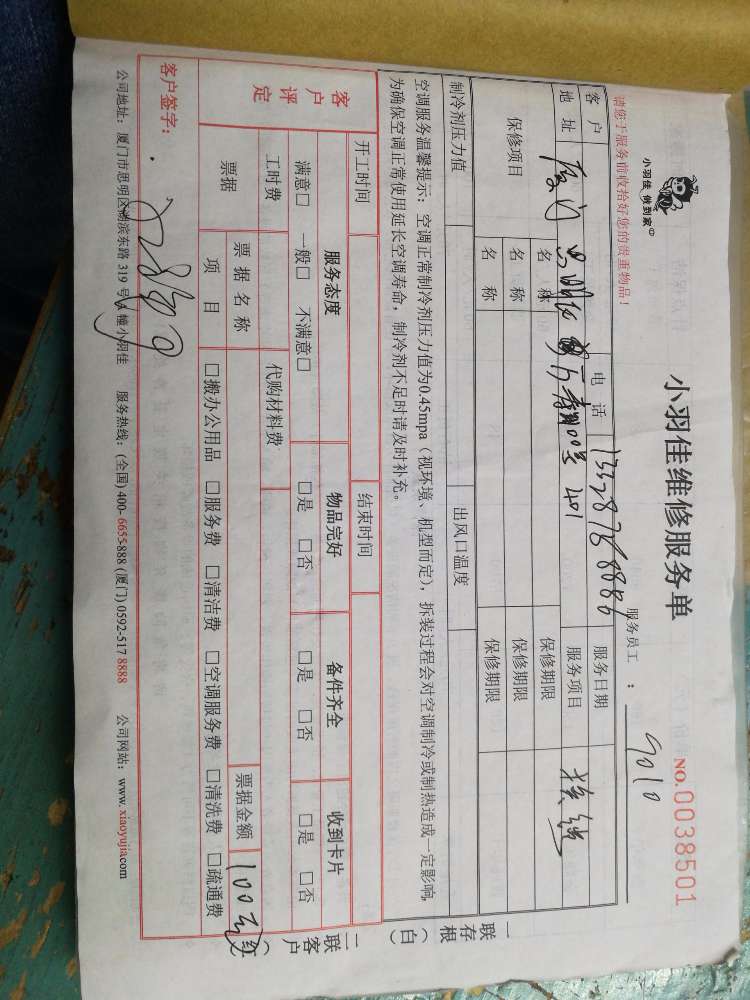 小羽佳 做到家
小羽佳维修服务单
NO.0038501
请您于服务前收拾好您的贵重物品！
服务员工： 9010
客户 电话 服务日期
地址 厦门 思明区 401 服务项目
保修项目 名称 保修期限
名称 保修期限
名称 保修期限
制冷剂压力值 出风口温度
空调服务温馨提示：空调正常制冷剂压力值为0.45mpa（视环境、机型而定），拆装过程会对空调制冷或制热造成一定影响，
为确保空调正常使用延长空调寿命，制冷剂不足时请及时补充。
开工时间 结束时间
客户评定 服务态度 物品完好 备件齐全 收到卡片
满意□ 一般□ 不满意□ □是 □否 □是 □否 □是 □否
工时费 代购材料费
票据 票据名称 票据金额 100元
项目 □搬办公用品 □服务费 □清洁费 □空调服务费 □清洗费 □疏通费
客户签字：
公司地址：厦门市思明区湖滨东路 319 号 幢小羽佳 服务热线：(全国) 400-6655-888 (厦门) 0592-517 8888 公司网站：www.xiaoyujia.com
一联存根（白）
二联客户（红